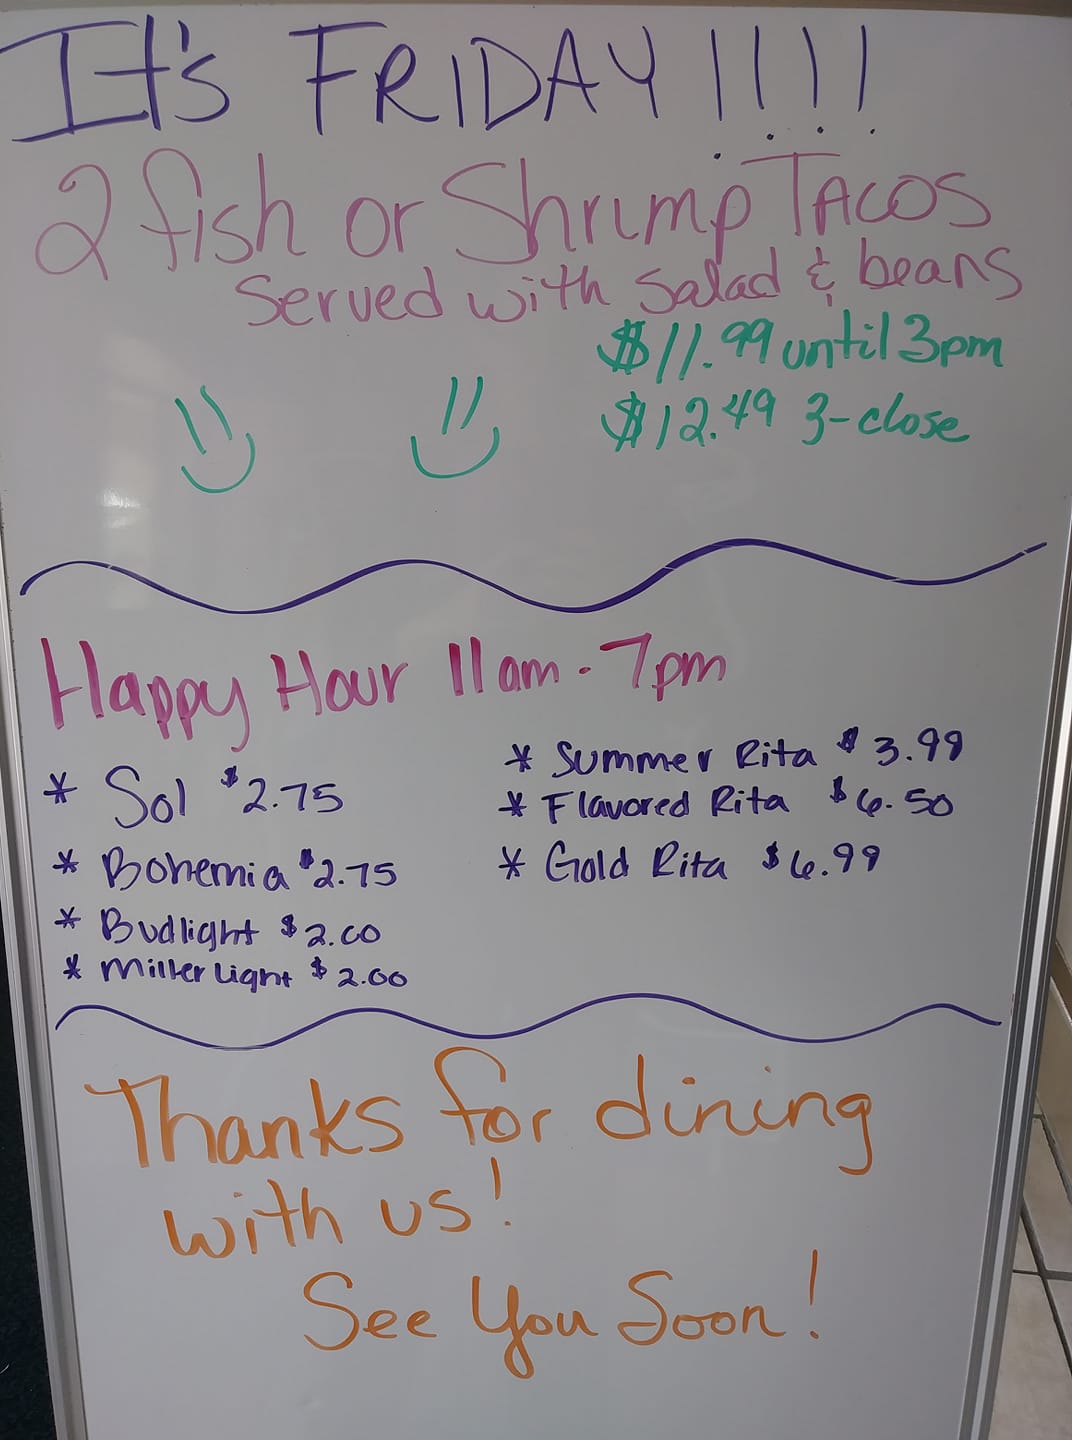 It's FRIDAY!!!!
2 fish or Shrimp TACOS
Served with salad & beans
$11.99 until 3pm
$12.49 3-close
Happy Hour 11am-7pm
* Sol $2.75
* Bohemia $2.75
* Budlight $2.00
* Miller Light $2.00
* Summer Rita $3.99
* Flavored Rita $6.50
* Gold Rita $6.99
Thanks for dining
with us!
See You Soon!